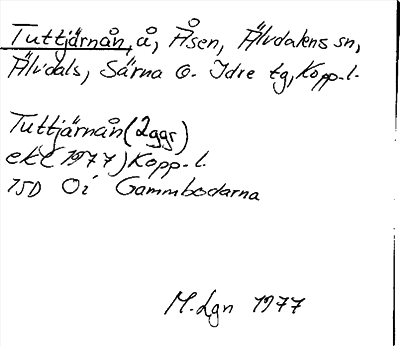 Tuttjärnån, å, Åsen, Älvdalens sn,
Älvdals, Särna o. Idre tg, Kopp.l.
Tuttjärnån (2ggr)
ek (1977) Kopp.l.
15D 0i Gammbodarna
M.Lgn 1977